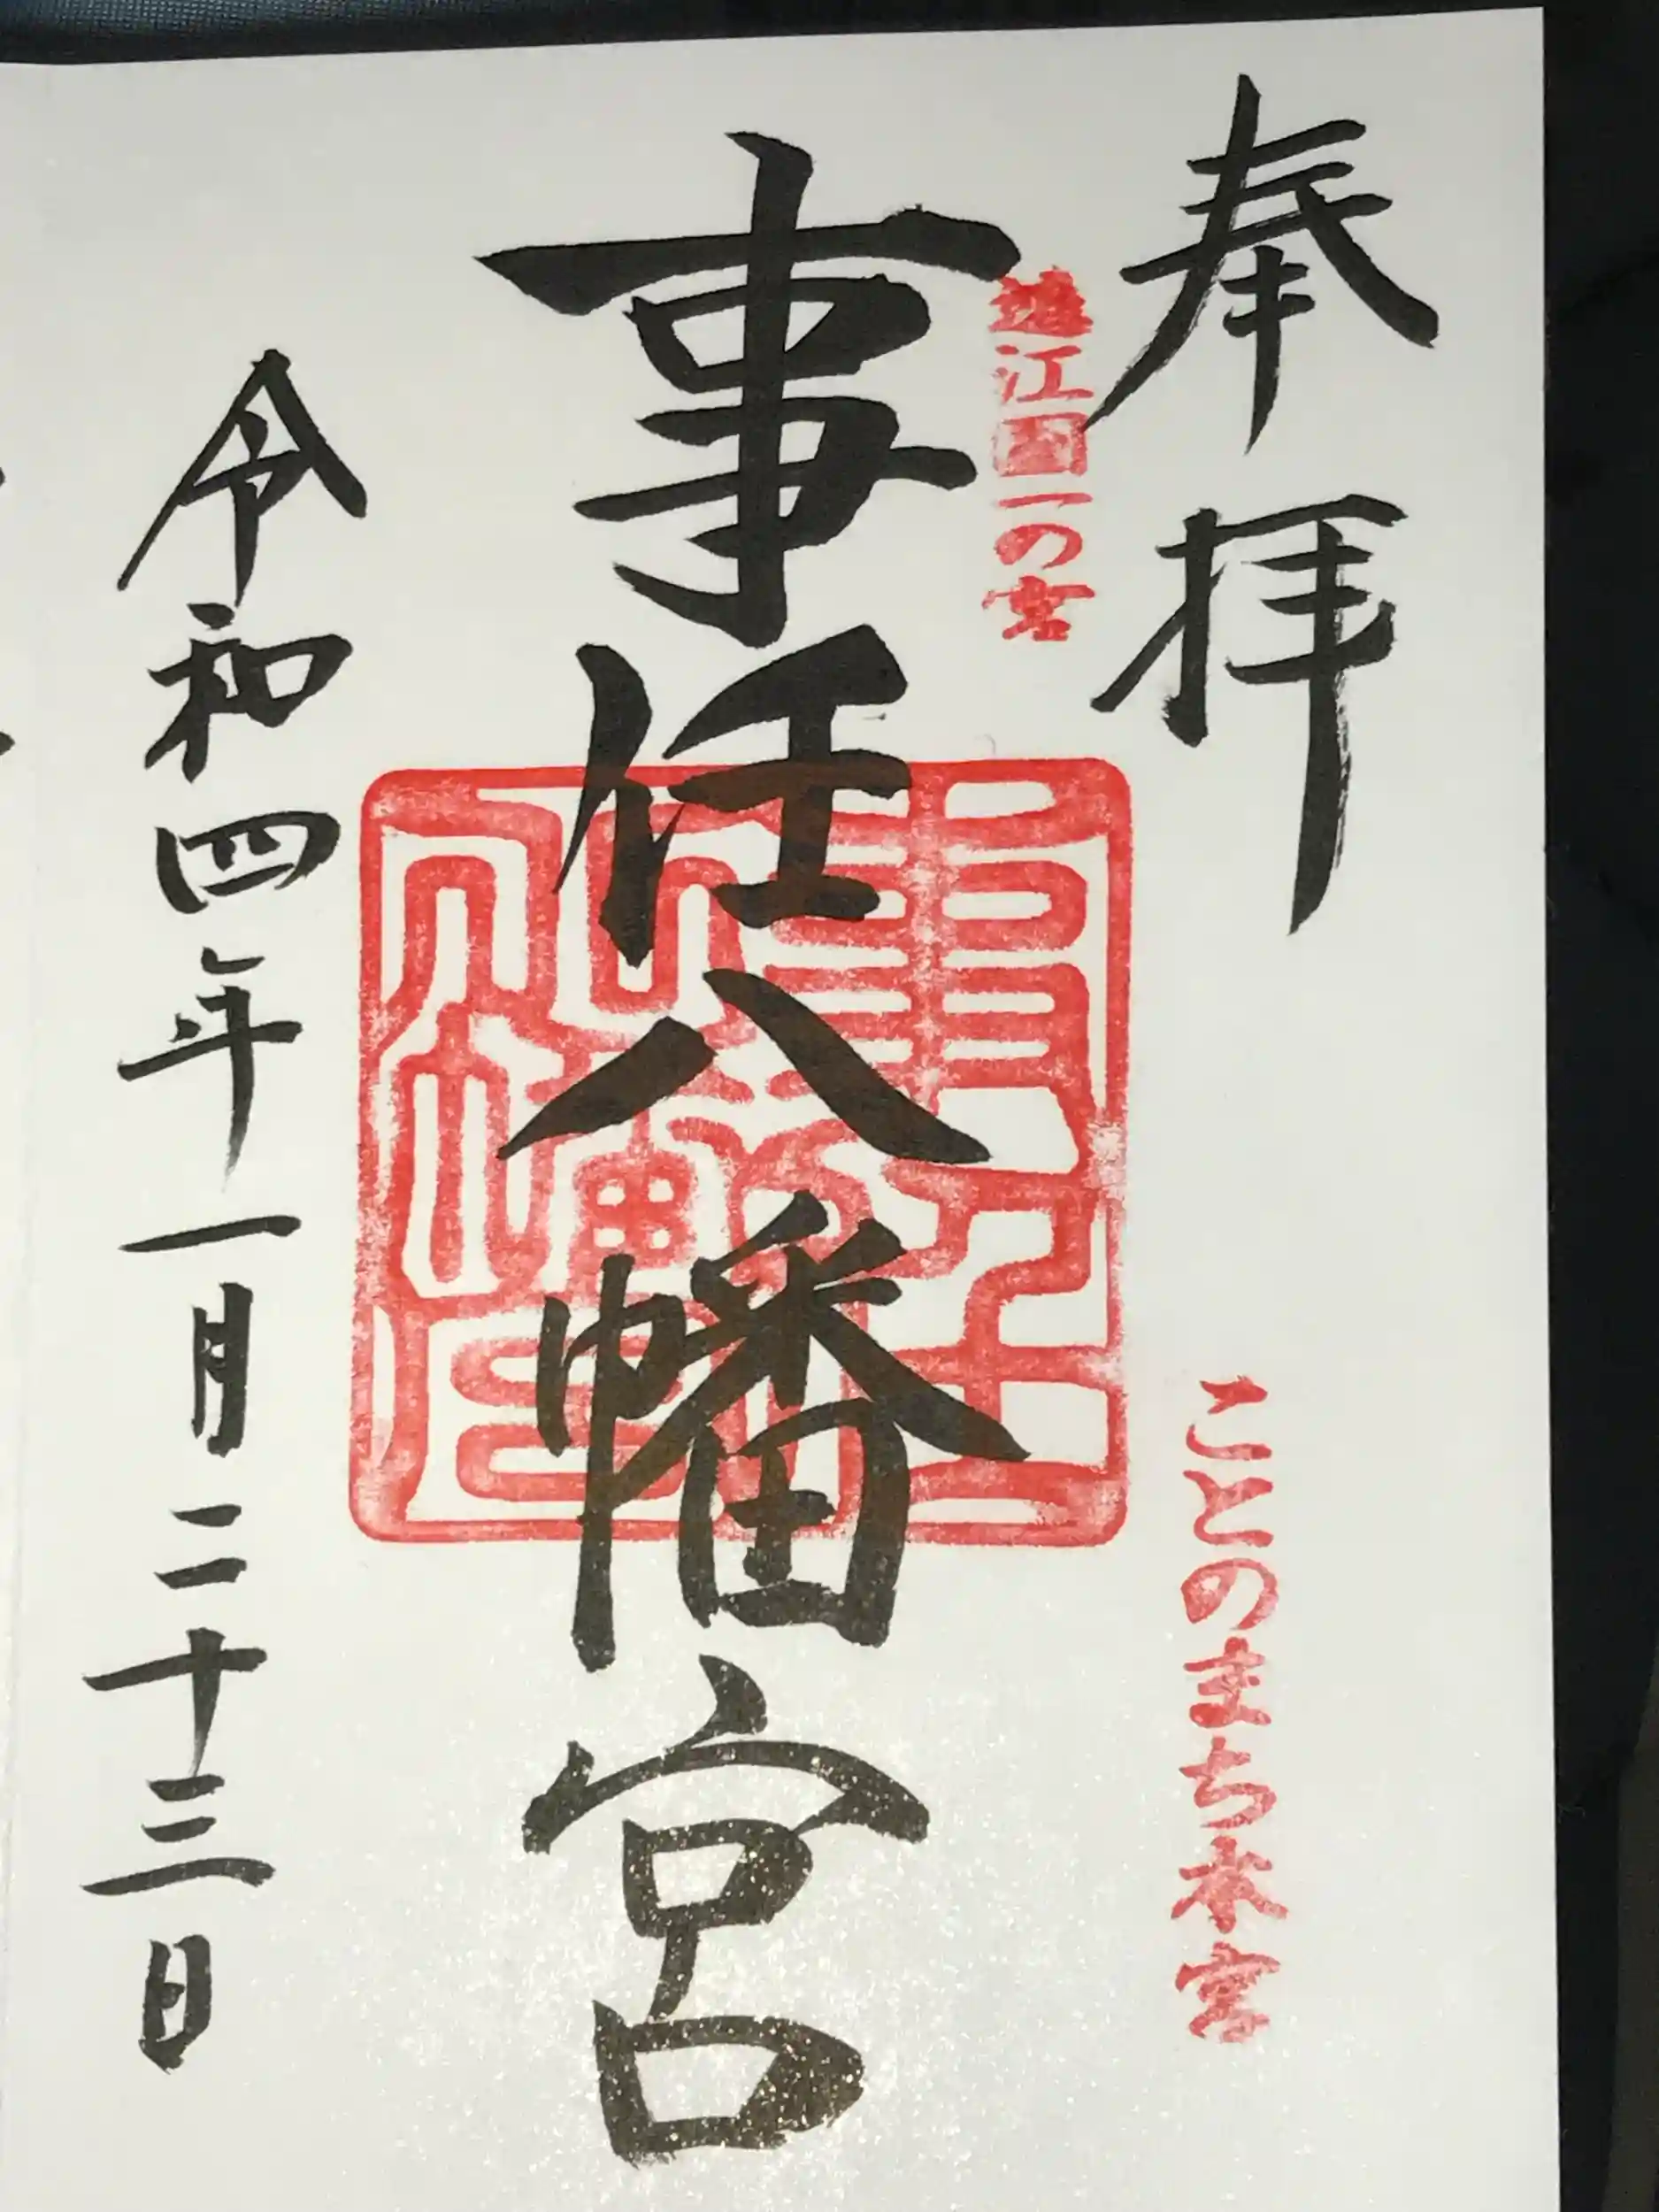 奉拝
ことのまち本宮
遠江国一の宮
事任八幡宮
令和四年一月二十三日